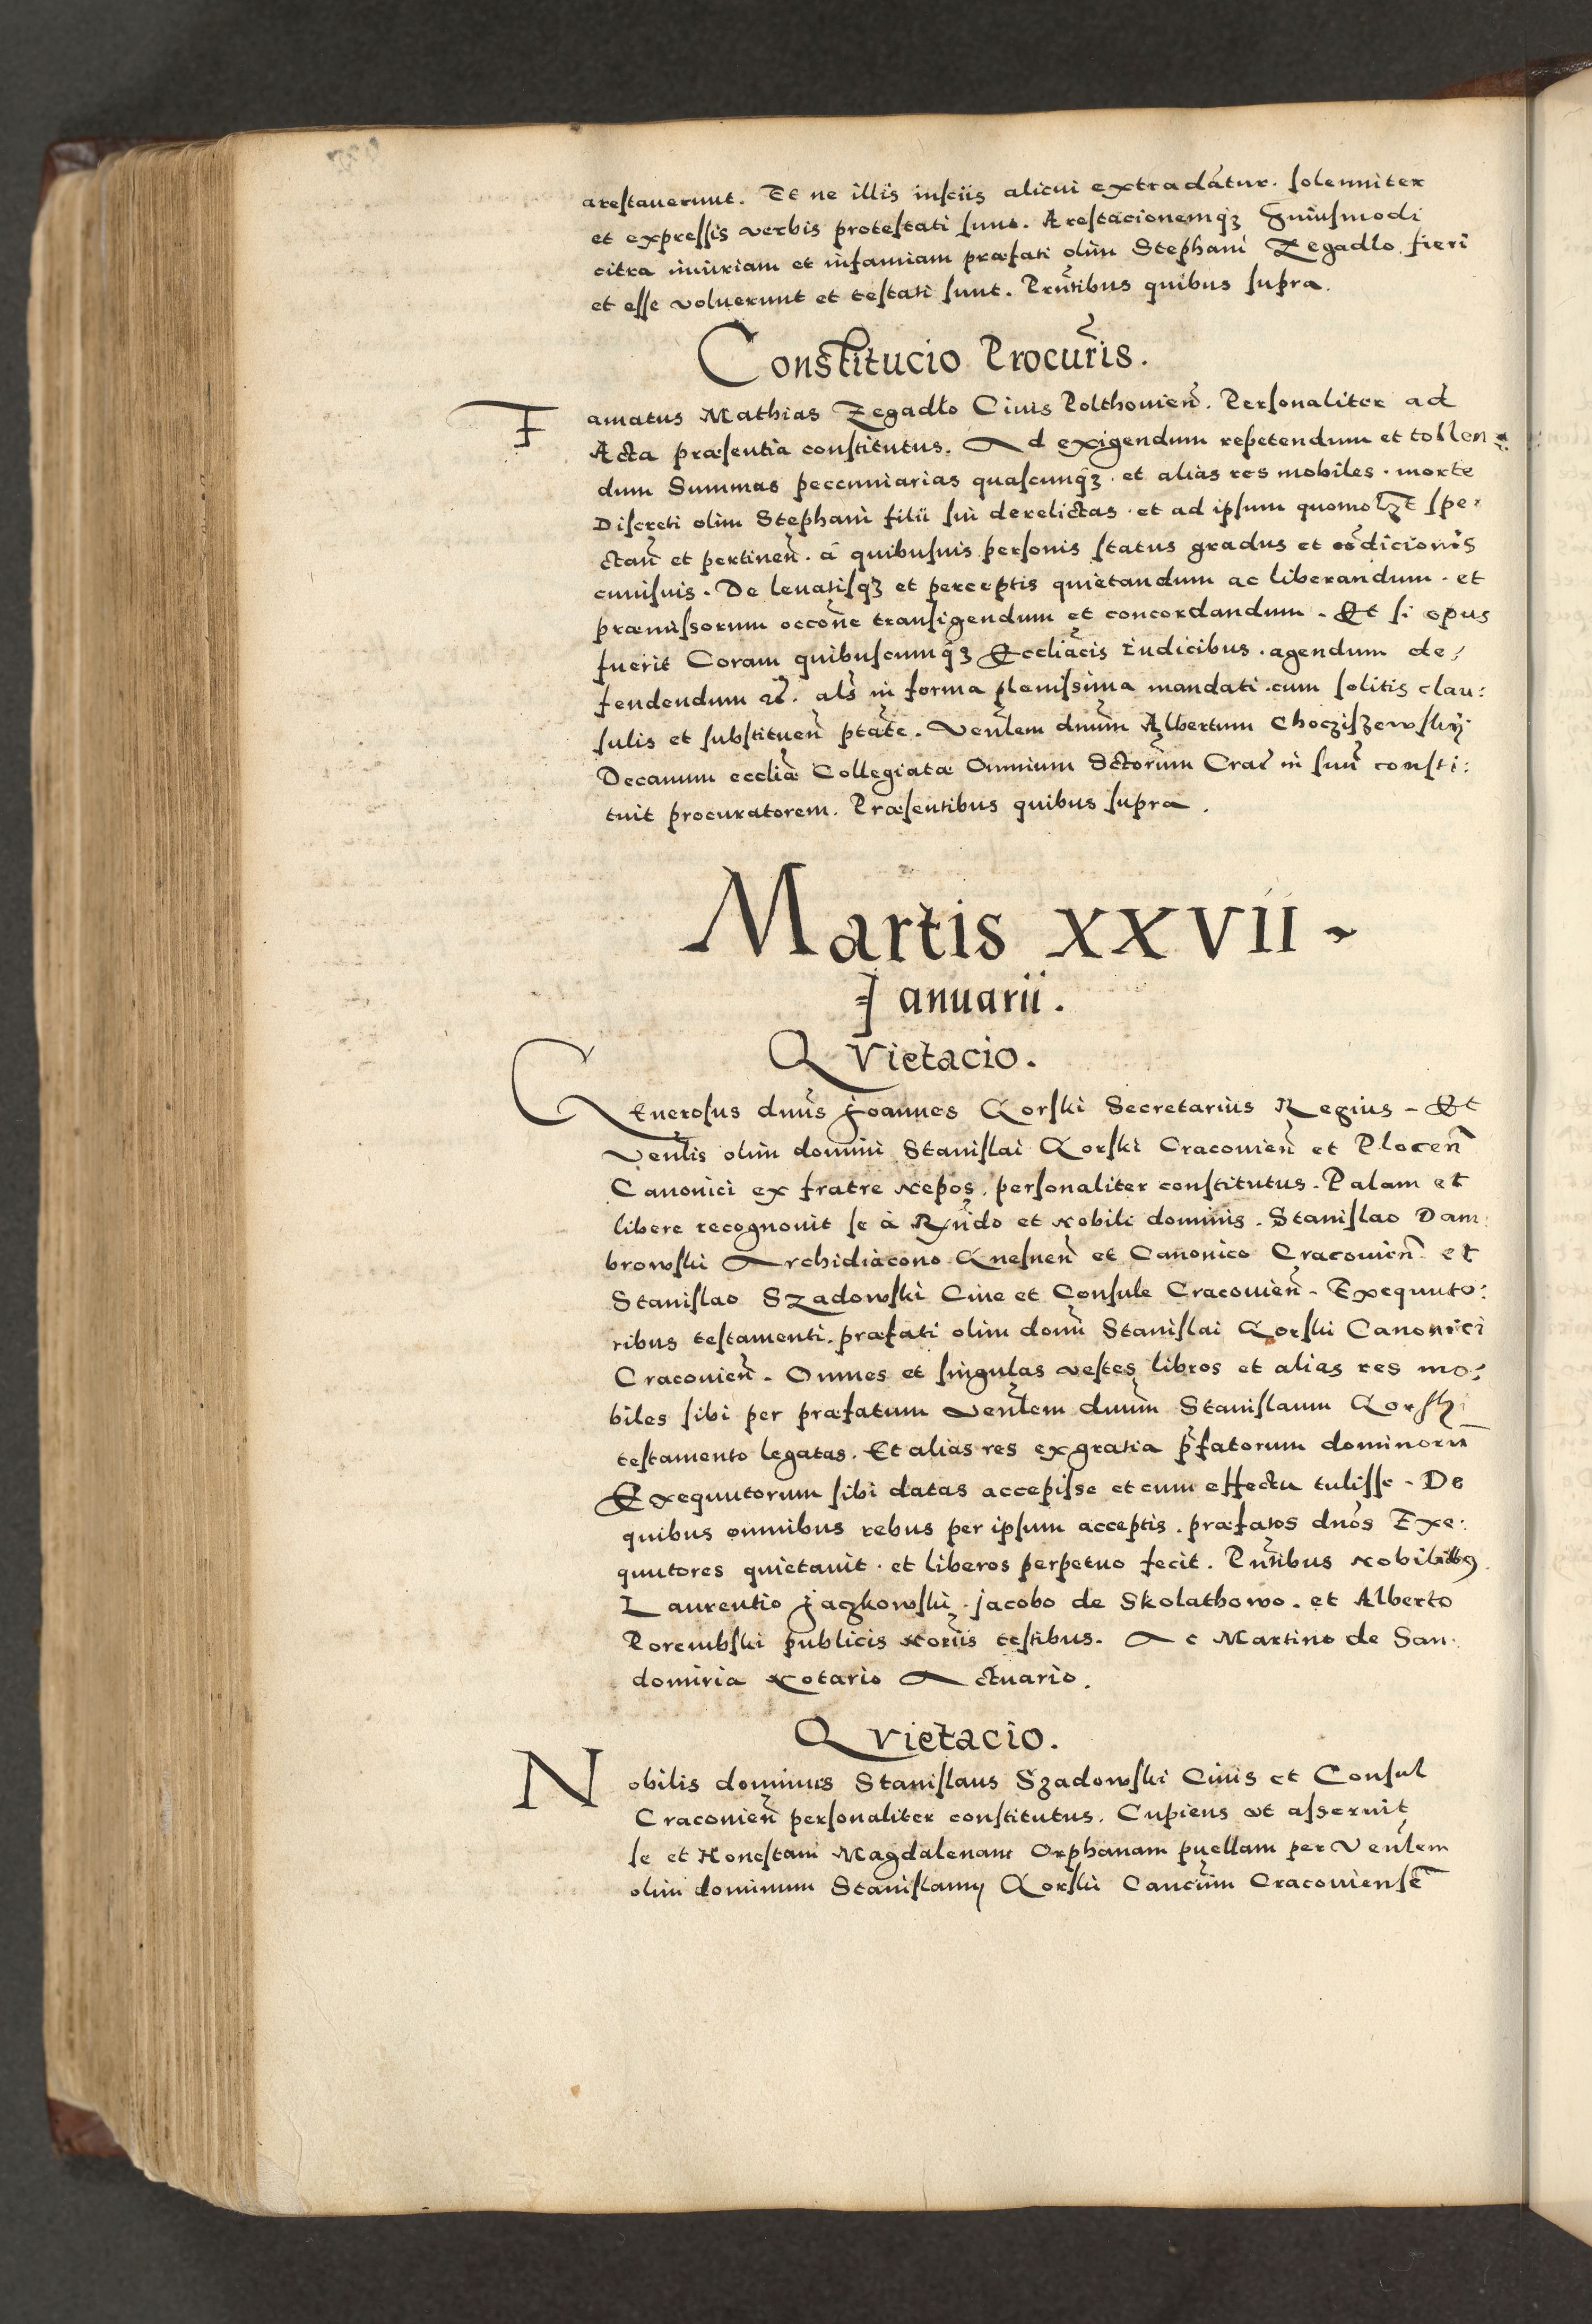 arestauerunt. Et ne illis insciis alicui extradantur. solenniter
et expressis verbis protestati sunt. Arestacionemqȝ huiusmodi
citra iniuriam et infamiam præfati olim Stephani Zegadlo fieri
et esse voluerunt et testati sunt. Prn̄tibus quibus supra.
Constitucio Procur̄is.
Famatus Mathias Zegadło Ciuis Polthouien̄. Personaliter ad
Acta præsentia constitutus. Ad exigendum repetendum et tollen:
dum Summas peccuniarias quascunqȝ. et alias res mobiles. morte
Discreti olim Stephani filii sui derelictas. et ad ipsum quomolȝt spe:
ctan̄ et pertinen̄. à quibusuis personis status gradus et cōdicionis
cuiusuis. De leuatisqȝ et perceptis quietandum ac liberandum. et
præmissorum occōne transigendum et concordandum. Et si opus
fuerit Coram quibuscumqȝ Eccliācis Iudicibus. agendum de:
fendendum ꝛc̄. als̄ in forma plenissima mandati. cum solitis clau:
sulis et substituen̄ ptāte. Venl̄em dnūm Albertum Choczischewskÿ
Decanum eccliǣ Collegiatæ Omnium Sctōrum Crac̄ in suū consti:
tuit procuratorem. Præsentibus quibus supra.
Martis XXVII
Januarii.
Qvietacio.
GEnerosus dnūs Joannes Gorski Secretarius Regius. Et
Venl̄is olim domini Stanislai Gorski Cracouien̄ et Plocen̄
Canonici ex fratre nepos. personaliter constitutus. Palam et
libere recognouit se à Rn̄do et nobili dominis. Stanislao Dam
browski Archidiacono Gnesnen̄ et Canonico Cracouien̄ et
Stanislao Szadowski Ciue et Consule Cracouien̄. Exequuto:
ribus testamenti. præfati olim domī Stanislai Gorski Canonici
Cracouien̄. Omnes et singulas vestes libros et alias res mo:
biles sibi per præfatum Venl̄em dnūm Stanislaum Gorski
testamento legatas. Et alias res ex gratia p̄fatorum dominorū
Exequutorum sibi datas accepisse et cum effectu tulisse. De
quibus omnibus rebus per ipsum acceptis. præfatos dnōs Exe:
quutores quietauit. et liberos perpetuo fecit. Pn̄tibus nobilibus
Laurentio Jaczkowski. Jacobo de Skolathowo. et Alberto
Porembski publicis notr̄iis testibus. Ac Martino de San
domiria Notario Actuario.
Qvietacio.
Nobilis dominus Stanislaus Szadowski Ciuis et Consul
Cracouien̄ personaliter constitutus. Cupiens vt asseruit
se et Honestam Magdalenam Orphanam puellam per Venl̄em
olim dominum Stanislaum Gorski Cancūm Cracouiensē